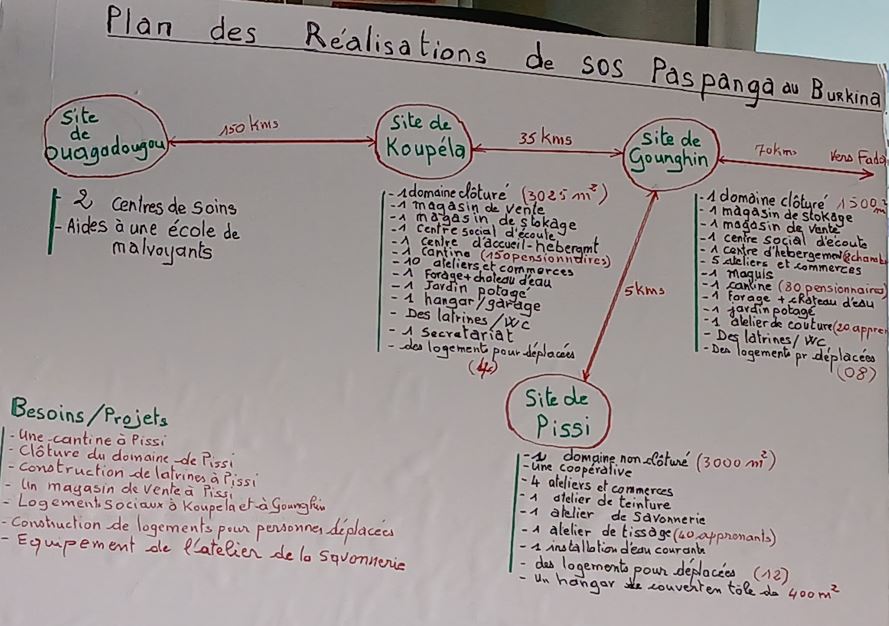 Plan des Réalisations de SOS Paspanga au Burkina
Site
de
Ouagadougou
150 kms
Site de
Koupéla
35 kms
Site de
Gounghin
70km
Vers Fada
- 2 Centres de Soins
- Aides à une école de
malvoyants
- 1 domaine clôturé (3025 m²)
- 1 magasin de vente
- 1 magasin de stokage
- 1 centre social d'écoute
- 1 centre d'accueil-hébergmt
- 1 cantine (150 pensionnaires)
- 10 ateliers et commerces
- 1 Forage + chateau d'eau
- 1 Jardin potagé
- 1 hangar/garage
- Des latrines/WC
- 1 Secretariat
- des logement pour déplacées
(4)
- 1 domaine clôturé 1500 m²
- 1 magasin de stokage
- 1 magasin de vente
- 1 centre social d'écoute
- 1 centre d'hébergement
- 5 ateliers et commerces
- 1 maquis
- 1 cantine (80 pensionnaires)
- 1 forage + château d'eau
- 1 jardin potagé
- 1 atelier de couture (20 appren
- Des latrines/WC
- Des logements pr déplacées
(08)
5 kms
Site de
Pissi
- 1 domaine non clôturé (3000 m²)
- Une coopérative
- 4 ateliers et commerces
- 1 atelier de teinture
- 1 atelier de Savonnerie
- 1 atelier de tissage (40 apprenants)
- 1 installation d'eau courante
- des logements pour déplacées (12)
- Un hangar couvert en tôle de 400 m²
Besoins/Projets
- Une cantine à Pissi
- Clôture du domaine de Pissi
- Construction de latrines à Pissi
- Un magasin de vente à Pissi
- Logements Sociaux à Koupela et à Gounghin
- Construction de logements pour personnes déplacées
- Equipement de l'atelier de la Savonnerie